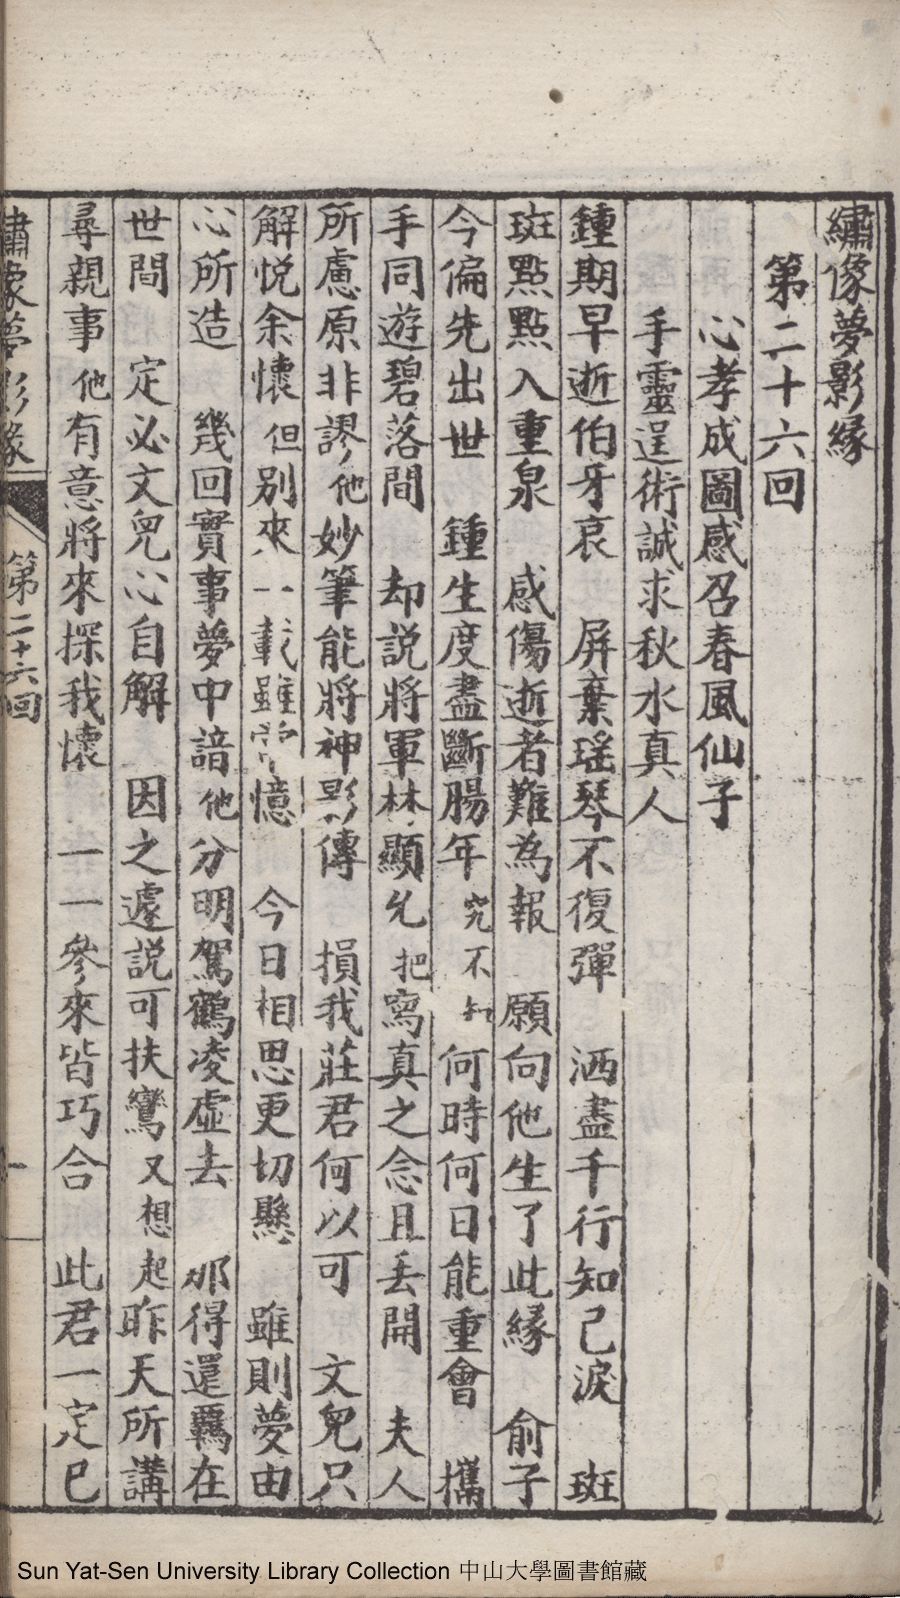 繡像夢影緣
第二十六回
心孝成圖感召春風仙子
手靈逞術誠求秋水真人
鍾期早逝伯牙哀　屏棄瑤琴不復彈　洒盡千行知己淚　斑
斑點點入重泉　感傷逝者難為報　願向他生了此緣　俞子
今偏先出世　鍾生度盡斷腸年　究不知何時何日能重會　攜
手同遊碧落間　却説將軍林顯允把寫真之念且丢開　夫人
所慮原非謬　他妙筆能將神影傳　損我莊君何以可　文皃只
解悦余懷　但別來一載雖常憶　今日相思更切懸　雖則夢由
心所造　幾回實事夢中諳　他分明駕鶴凌虛去　那得還羈在
世間　定必文皃心自解　因之遽説可扶鸞　又想起昨天所講
尋親事　他有意將來探我懷　一一參來皆巧合　此君一定已
繡像夢影緣　第二十六回　一
Sun Yat-Sen University Library Collection 中山大學圖書館藏